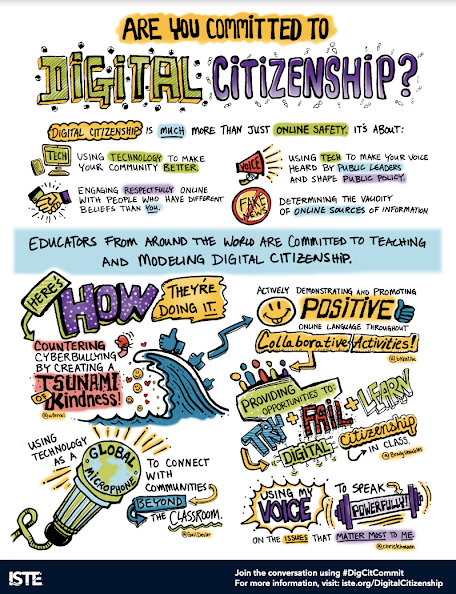 ARE YOU COMMITTED TO
DIGITAL CITIZENSHIP?
DIGITAL CITIZENSHIP IS MUCH MORE THAN JUST ONLINE SAFETY. IT'S ABOUT:
TECH
USING TECHNOLOGY TO MAKE
YOUR COMMUNITY BETTER.
VOICE
USING TECH TO MAKE YOUR VOICE
HEARD BY PUBLIC LEADERS
AND SHAPE PUBLIC POLICY.
ENGAGING RESPECTFULLY ONLINE
WITH PEOPLE WHO HAVE DIFFERENT
BELIEFS THAN YOU.
FAKE
NEWS
DETERMINING THE VALIDITY
OF ONLINE SOURCES OF INFORMATION
EDUCATORS FROM AROUND THE WORLD ARE COMMITTED TO TEACHING
AND MODELING DIGITAL CITIZENSHIP.
HERE'S
HOW
THEY'RE
DOING IT.
COUNTERING
CYBERBULLYING
BY CREATING A
TSUNAMI
OF Kindness!
ACTIVELY DEMONSTRATING AND PROMOTING
POSITIVE
ONLINE LANGUAGE THROUGHOUT
Collaborative Activities!
PROVIDING
OPPORTUNITIES TO:
TRY + FAIL + LEARN
DIGITAL
citizenship
IN CLASS.
USING
TECHNOLOGY
AS A
GLOBAL
MICROPHONE
TO CONNECT
WITH
COMMUNITIES
BEYOND
THE CLASSROOM.
@GailDesler
USING MY
VOICE
TO SPEAK
POWERFULLY!
ON THE ISSUES THAT MATTER MOST TO ME.
ISTE
Join the conversation using #DigCitCommit
For more information, visit: iste.org/DigitalCitizenship